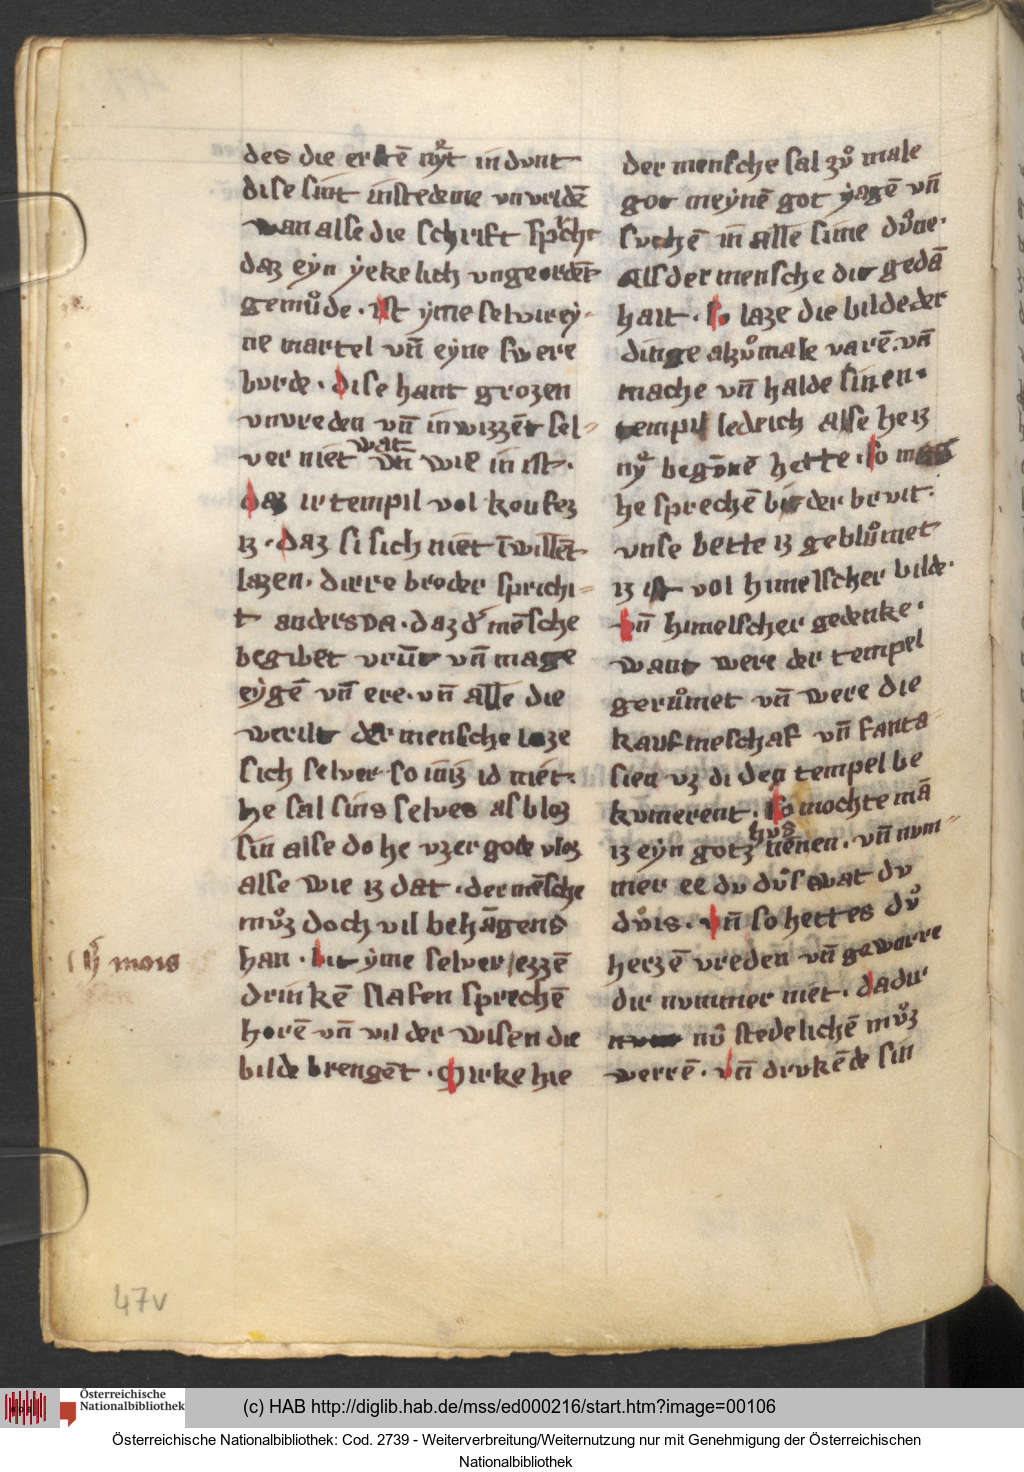 des die erstē nyͤt in dunt
dise sint instedene vn vrldē
wan alse die schrift sprͣchit
daz eẏn ẏekelich vngeordēt
gemuͦde · ist ẏme selvir eẏ-
ne martel vn̄ eẏne swere
burde · dise hant grozen
vnvreden vn̄ in wizzēt sel-
ver niet wat vn̄ wie in ist ·
daz ir tempil vol koufez
iz · daz si sich niet īwissēt
lazen · dirre broder sprichi-
t anders da · daz dͬ mēsche
begibet vrūt vn̄ mage
eẏgē vn̄ ere · vn̄ alle die
werilt der mensche loze
sich selver so iniz id niet ·
he sal sins selves als bloz
sin alse do he vzer gode vloz
alse wie iz dat · der mēsche
muͦz doch vil behāgens
han · bit ẏme selver / ezzē
drinkē slafen sprechē
horē vn̄ vil der wisen die
bilde brengēt · Mirke hie
mois
der mensche sal zuͦ male
got meẏnē got ẏagē vn̄
suchē in alle sime duͦne ·
Als der mensche dir gedā
hait · so laze die bilde der
dinge alzuͦmale varē · vn̄
mache vn̄ halde sinen ·
tempil ledrich alse he iz
nyͤ begonē hette · so
he sprechē bit der bruit ·
vnse bette iz gebluͦmet
iz ist vol himelscher bilde ·
vn̄ himelscher gedenke ·
want were der tempel
geruͦmet vn̄ were die
kaufmeschaf vn̄ fanta-
sien vz di den tempel be
kumerent · so mochte mā
hus
iz eẏn gotz nēnen · vn̄ num-
mer ee du duͦs wat du
duͦis · vn̄ so hettes duͦ
herzē vreden vn̄ gewarre
dir nummer niet · dadir
nuͦ stedelichē muͦz
werrē · vn̄ drukēde sin
47v
Österreichische
Nationalbibliothek
(c) HAB http://diglib.hab.de/mss/ed000216/start.htm?image=00106
Österreichische Nationalbibliothek: Cod. 2739 - Weiterverbreitung/Weiternutzung nur mit Genehmigung der Österreichischen
Nationalbibliothek